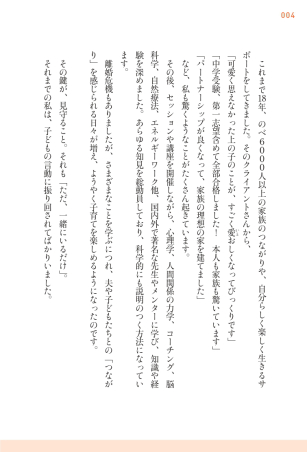 004
これまで18年、のべ6000人以上の家族のつながりや、自分らしく楽しく生きるサ
ポートをしてきました。そのクライアントさんから、
「可愛く思えなかった上の子のことが、すごく愛おしくなってびっくりです」
「中学受験、第一志望含めて全部合格しました！　本人も家族も驚いています」
「パートナーシップが良くなって、家族の理想の家を建てました」
など、私も驚くようなことがたくさん起きています。
その後、セッションや講座を開催しながら、心理学、人間関係の力学、コーチング、脳
科学、自然療法、エネルギーワーク他、国内外で著名な先生やメンターに学び、知識や経
験を深めました。あらゆる知見を総動員しており、科学的にも説明のつく方法になってい
ます。
離婚危機もありましたが、さまざまなことを学ぶにつれ、夫や子どもたちとの「つなが
り」を感じられる日々が増え、ようやく子育てを楽しめるようになったのです。
その鍵が、見守ること。それも「ただ、一緒にいるだけ」。
それまでの私は、子どもの言動に振り回されてばかりいました。